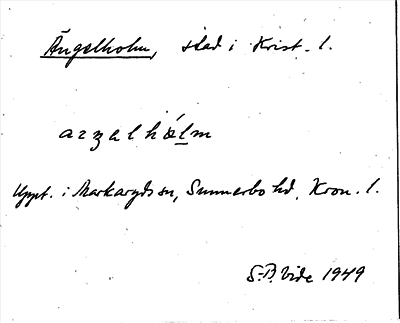 Ängelholm, stad i Krist. l.
aŋəlhólm
Uppt. i Markaryds sn, Sunnerbo hd, Kron. l.
S.-B. Vide 1949